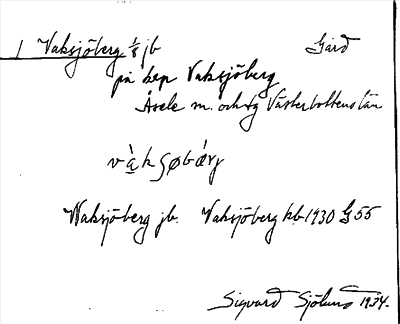 1 Vaksjöberg 1/8 jb Gård
på kap Vaksjöberg
Åsele m. och tg Västerbottens län
vàkʃøbárj
Vaksjöberg jb. Vaksjöberg kb 1930 G 55
Sigvard Sjölund 1934.